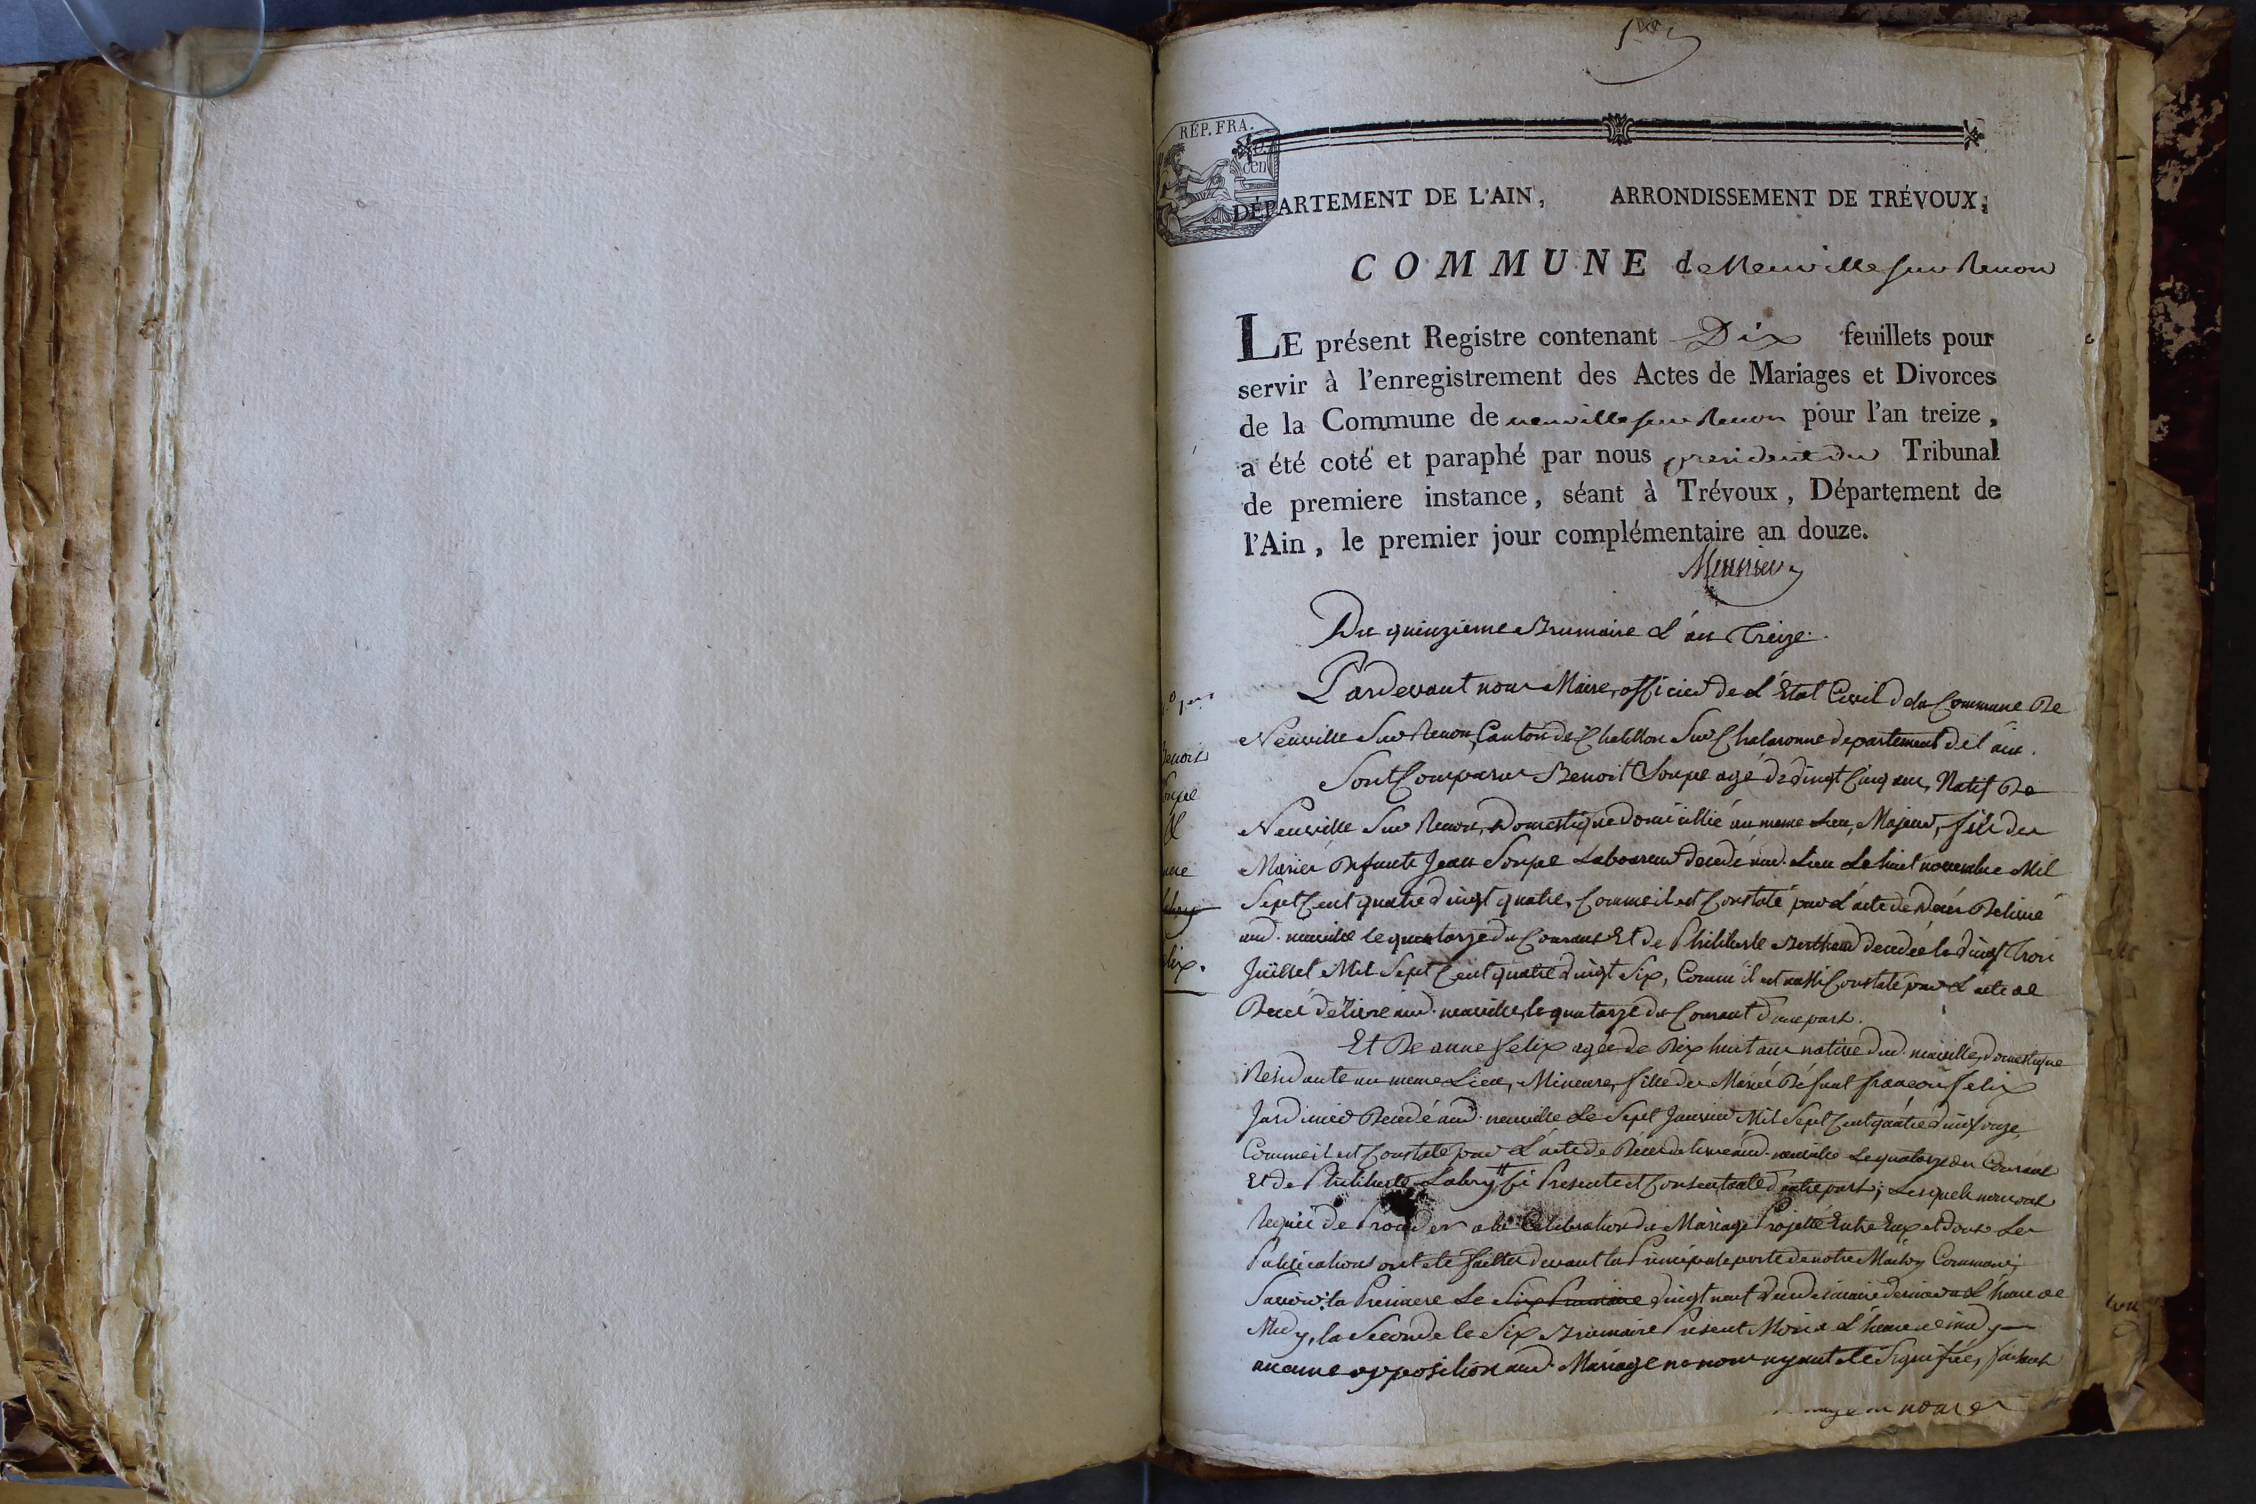 1re
RÉP. FRA.
cen
DÉPARTEMENT DE L'AIN, ARRONDISSEMENT DE TRÉVOUX;
COMMUNE de Neuville sur Renon
LE présent Registre contenant Dix feuillets pour
servir à l'enregistrement des Actes de Mariages et Divorces
de la Commune de neuville sur Renon pour l'an treize,
a été coté et paraphé par nous president du Tribunal
de premiere instance, séant à Trévoux, Département de
l'Ain, le premier jour complémentaire an douze.
Du quinzieme Brumaire L'an Treize.
Pardevant nous Maire, officier de L'Etat Civil de la Commune De
Neuville Sur Renon, Canton de Chatillon Sur Chalaronne departement de l'ain.
Sont Comparus Benoit Soupe agé de vingt Cinq ans, Natif De
Neuville Sur Renon, Domestique domicillié au meme Lieu, Majeur, fils des
Mariés Defunts Jean Soupe Laboureur decedé aud. Lieu Le huit novembre Mil
Sept Cent quatre vingt quatre, Comme il est Constaté par L'acte de Decés Delivré
aud. neuville le quatorze du Courant Et de Philiberte Berthaud decedée le vingt Trois
Juillet Mil Sept Cent quatre vingt Six, Comme il est aussi Constaté par L'acte de
Decé délivré aud. neuville, le quatorze du Courant d'une part.
Et De anne felix agée de Dix huit ans native dud. neuville, domestique
Residante au meme Lieu, Mineure, fille des Mariés Défunt francois felix
Jardinier Decedé aud. neuville Le Sept Janvier Mil Sept Cent quatre vingt onze,
Comme il est Constaté par L'acte de Décés delivré aud. neuville Le quatorze du Courant
Et de Philiberte Labry Ci Presente et Consentante d'autre part; Lesquels nous ont
Requis de Proceder a la Celebration du Mariage Projetté Entre Eux et dont Les
Publications ont eté faittes devant la Principale porte de notre Maison Commune;
Savoir: la Premiere Le vingt neuf Vendemiaire dernier a L'heure de
Midy, la Seconde le Six Brumaire Present Mois a L'heure de midy
aucune opposition aud. Mariage ne nous ayant eté Signifiée, faisant
Benoit
Soupe
&
anne
Labry
felix.